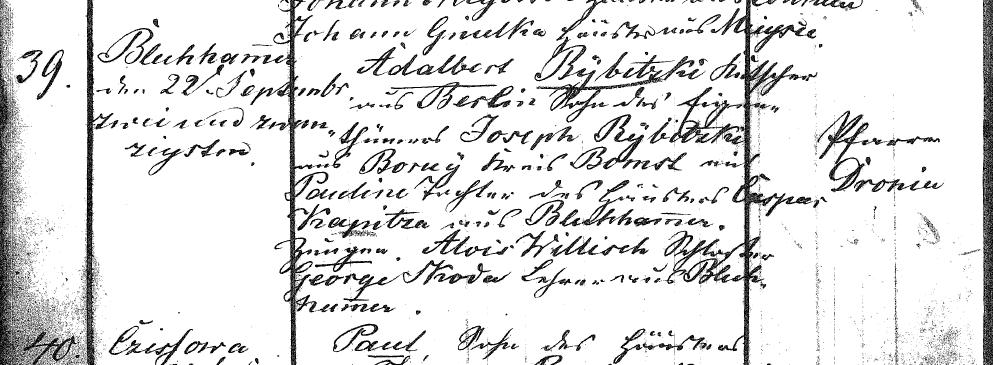 Johann Gmelka Häusler aus Miegsie.
39.
Blechhammer
den 22t Septembr.
zwei und zwan-
zigsten.
Adalbert Rÿbitzki Kutscher
aus Berlin Sohn des Eigen-
thümers Joseph Rÿbitzki
aus Boruÿ Kreis Bomst mit
Pauline Tochter des Häuslers Caspar
Kapitza aus Blechhamer.
Zeugen. Alois Willisch Schlosser
George Skoda Lehrer aus Blech-
hamer.
Pfarrer
Dronia
40.
Czissowa
Paul, Sohn des Häuslers